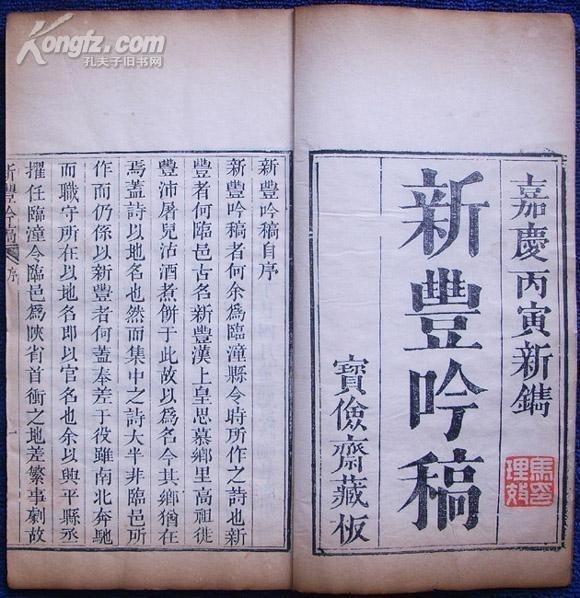 Kongfz.com
孔夫子旧书网
嘉慶丙寅新鐫
新豐吟稿
寶儉齋藏板
新豐吟稿自序
新豐吟稿者何余為臨潼縣令時所作之詩也新
豐者何臨邑古名新豐漢上皇思慕鄉里高祖徙
豐沛屠兒沽酒煮餅于此故以為名今其鄉猶在
焉蓋詩以地名也然而集中之詩大半非臨邑所
作而仍係以新豐者何蓋奉差于役雖南北奔馳
而職守所在以地名即以官名也余以興平縣丞
擢任臨潼今臨邑為陝省首衝之地差繁事劇故
新豐吟稿
序
一